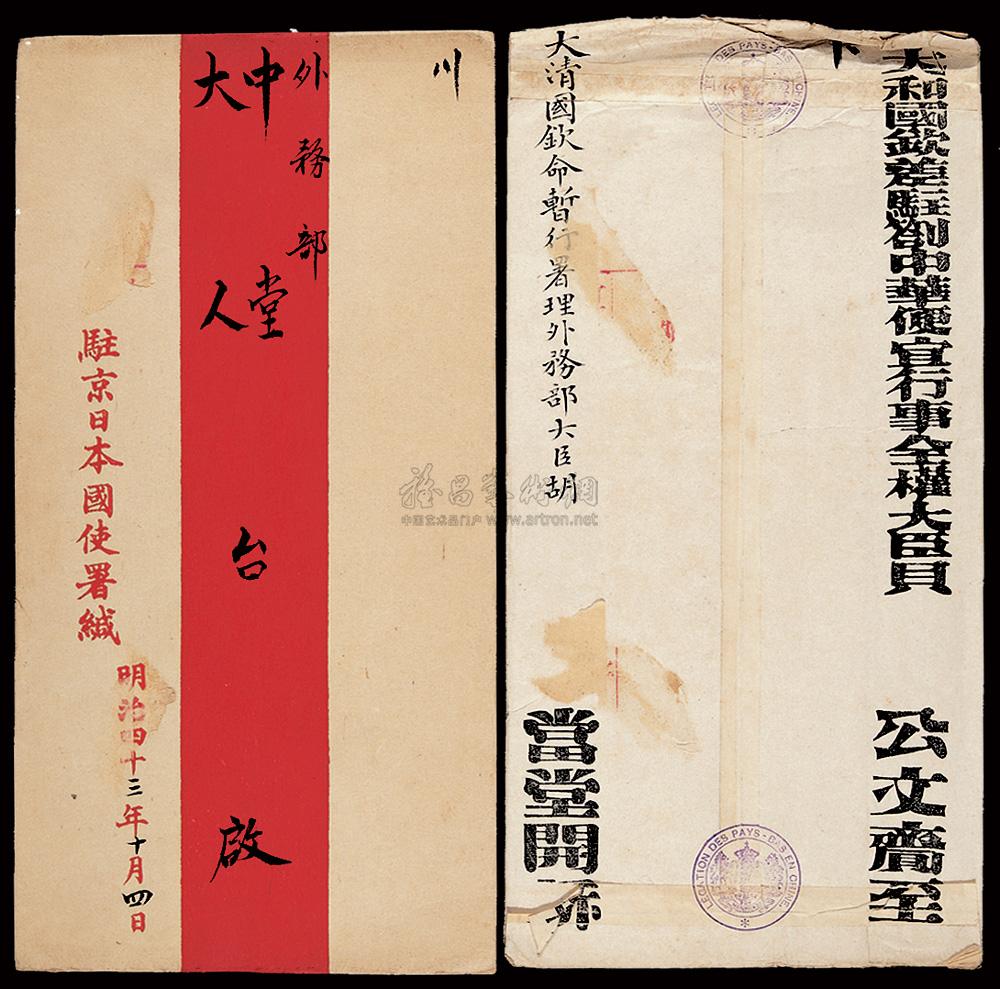 川
外務部
中堂
大人
台啟
駐京日本國使署緘
明治四十三年十月四日
大和國欽差駐劄中華便宜行事全權大臣貝
公文齎至
大清國欽命暫行署理外務部大臣胡
當堂開拆
LEGATION DES PAYS-BAS EN CHINE
LEGATION DES PAYS-BAS EN CHINE
中国艺术品门户 www.artron.net